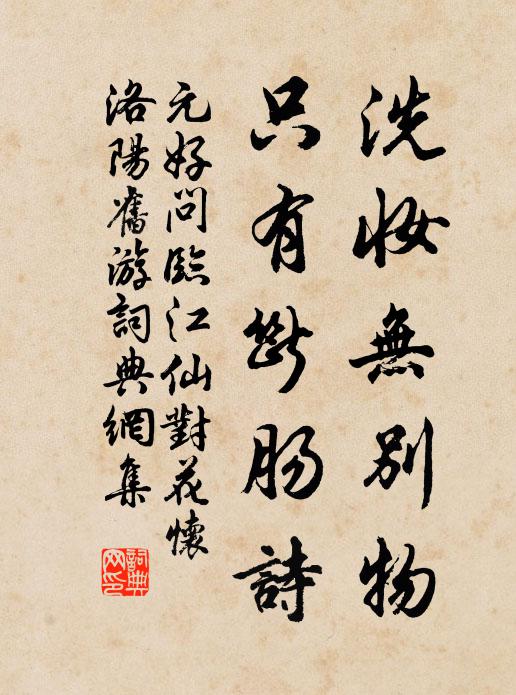 洗妝無別物
只有斷腸詩
元好問臨江仙對花懷
洛陽舊游詞典網集
詞典
网印